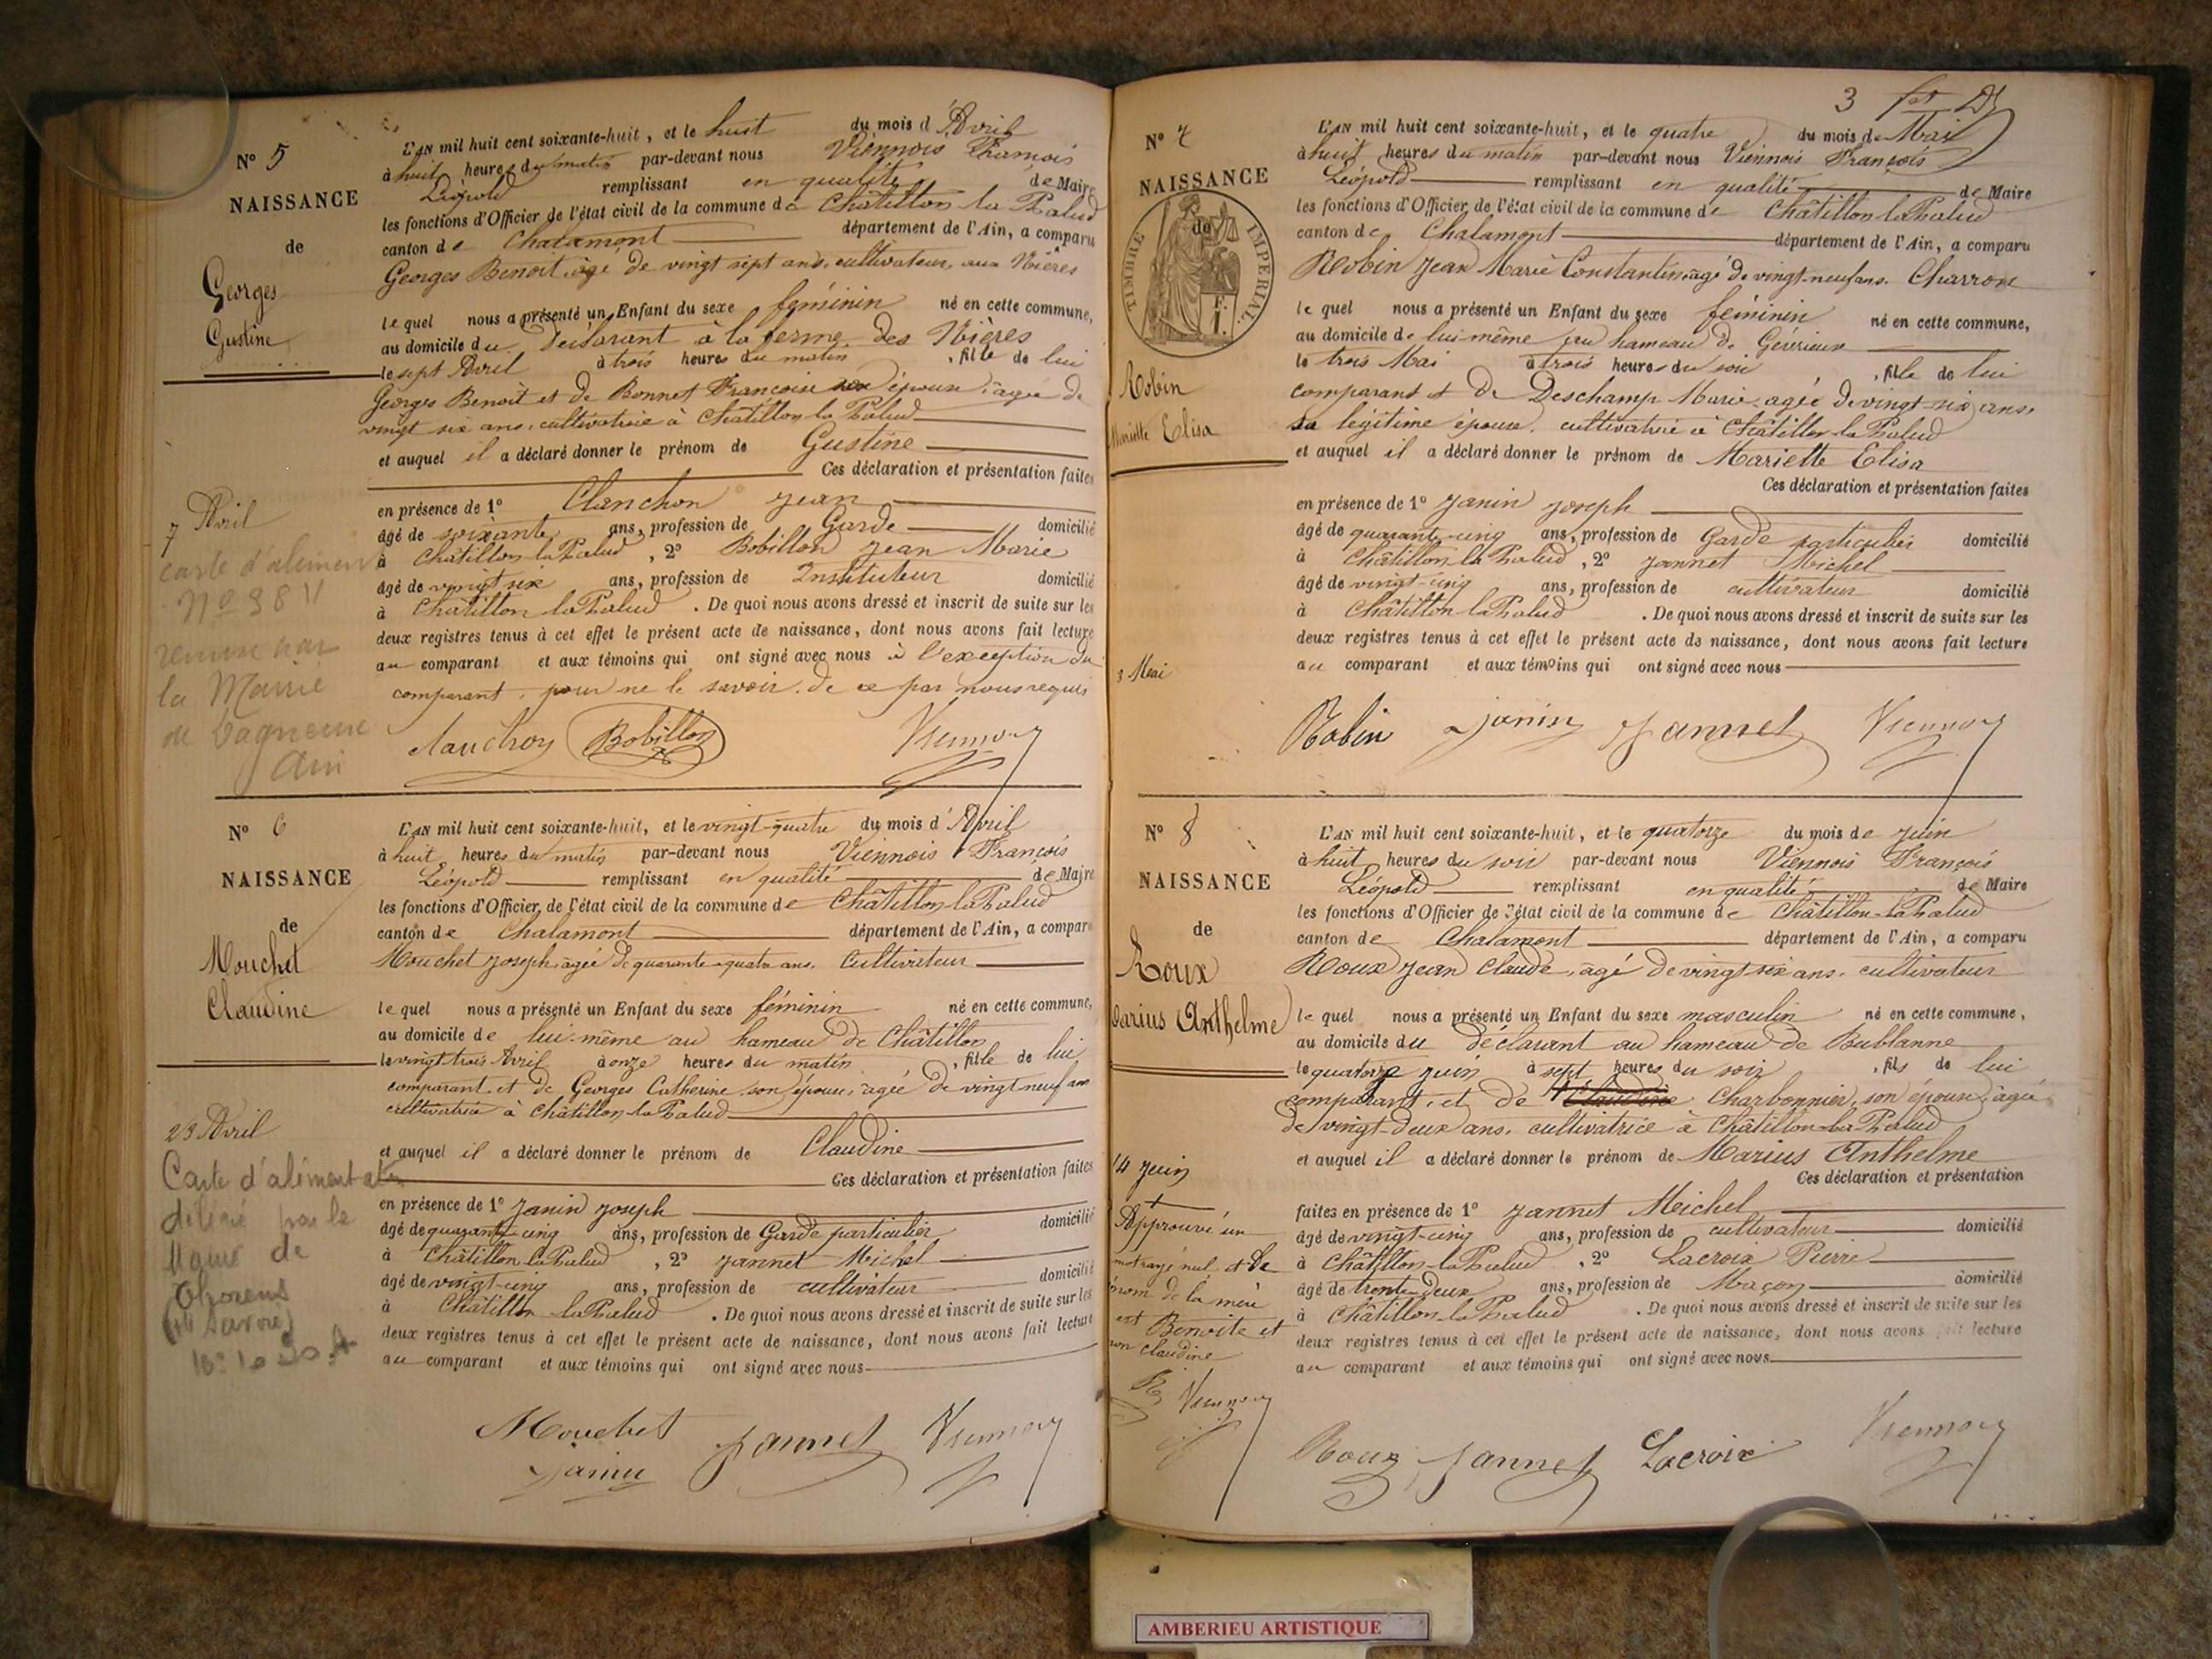 N° 5
NAISSANCE
de
Georges
Gustine
L'AN mil huit cent soixante-huit, et le huit du mois d'Avril
à huit heures du matin par-devant nous Viennois François
Léopold remplissant en qualité de Maire
les fonctions d'Officier de l'état civil de la commune de Châtillon la Palud
canton de Chalamont département de l'Ain, a comparu
Georges Benoit, âgé de vingt sept ans, cultivateur, aux Nières
lequel nous a présenté un Enfant du sexe féminin né en cette commune,
au domicile du déclarant à la ferme des Nières
le sept Avril à trois heures du matin, fille de lui
Georges Benoit et de Bonnet Françoise son épouse, âgée de
vingt six ans, cultivatrice à Châtillon la Palud
et auquel il a déclaré donner le prénom de Gustine
Ces déclaration et présentation faites
en présence de 1° Clanchon Jean
âgé de soixante ans, profession de Garde domicilié
à Châtillon la Palud, 2° Bobillon Jean Marie
âgé de vingt six ans, profession de Instituteur domicilié
à Châtillon la Palud. De quoi nous avons dressé et inscrit de suite sur les
deux registres tenus à cet effet le présent acte de naissance, dont nous avons fait lecture
au comparant et aux témoins qui ont signé avec nous à l'exception du
comparant, pour ne le savoir, de ce par nous requis
7 Avril
carte d'aliment
N°
remise par
la Mairie
de Cagneux
Ain
Bobillon Viennois
N° 6
NAISSANCE
de
Mouchet
Claudine
L'AN mil huit cent soixante-huit, et le vingt-quatre du mois d'Avril
à huit heures du matin par-devant nous Viennois François
Léopold remplissant en qualité de Maire
les fonctions d'Officier de l'état civil de la commune de Châtillon-la-Palud
canton de Chalamont département de l'Ain, a comparu
Mouchet Joseph, âgée de quarante-quatre ans, Cultivateur
lequel nous a présenté un Enfant du sexe féminin né en cette commune,
au domicile de lui-même au hameau de Châtillon
le vingt trois Avril à onze heures du matin, fille de lui
comparant, et de Georges Catherine son épouse, âgée de vingt neuf ans
cultivatrice à Châtillon-la-Palud
et auquel il a déclaré donner le prénom de Claudine
Ces déclaration et présentation faites
en présence de 1° Janin Joseph
âgé de quarante-cinq ans, profession de Garde particulier domicilié
à Châtillon la Palud, 2° Jannet Michel
âgé de vingt-cinq ans, profession de cultivateur domicilié
à Châtillon la Palud. De quoi nous avons dressé et inscrit de suite sur les
deux registres tenus à cet effet le présent acte de naissance, dont nous avons fait lecture
au comparant et aux témoins qui ont signé avec nous
23 Avril
Carte d'alimentat
délivré par le
Maire de
Thorens
(Hte Savoie)
Mouchet Jannet Viennois
Janin
3
N° 7
NAISSANCE
de
TIMBRE IMPERIAL
1 F.
Robin
Mariette Elisa
L'AN mil huit cent soixante-huit, et le quatre du mois de Mai
à huit heures du matin par-devant nous Viennois François
Léopold remplissant en qualité de Maire
les fonctions d'Officier de l'état civil de la commune de Châtillon la Palud
canton de Chalamont département de l'Ain, a comparu
Robin Jean Marie Constantin, âgé de vingt-neuf ans, Charron
lequel nous a présenté un Enfant du sexe féminin né en cette commune,
au domicile de lui-même au hameau de Gévrieux
le trois Mai à trois heures du soir, fille de lui
comparant et de Deschamp Marie, agée de vingt-six ans,
sa légitime épouse, cultivatrice à Châtillon-la-Palud
et auquel il a déclaré donner le prénom de Mariette Elisa
Ces déclaration et présentation faites
en présence de 1° Janin Joseph
âgé de quarante-cinq ans, profession de Garde particulier domicilié
à Châtillon la Palud, 2° Jannet Michel
âgé de vingt-cinq ans, profession de cultivateur domicilié
à Châtillon la Palud. De quoi nous avons dressé et inscrit de suite sur les
deux registres tenus à cet effet le présent acte de naissance, dont nous avons fait lecture
au comparant et aux témoins qui ont signé avec nous
3 Mai
Robin Janin Jannet Viennois
N° 8
NAISSANCE
de
Roux
Marius Anthelme
L'AN mil huit cent soixante-huit, et le quatorze du mois de Juin
à huit heures du soir par-devant nous Viennois François
Léopold remplissant en qualité de Maire
les fonctions d'Officier de l'état civil de la commune de Châtillon-la-Palud
canton de Chalamont département de l'Ain, a comparu
Roux Jean Claude, âgé de vingt six ans, cultivateur
lequel nous a présenté un Enfant du sexe masculin né en cette commune,
au domicile du déclarant au hameau de Bublanne
le quatorze Juin à sept heures du soir, fils de lui
comparant, et de Claudine Charbonnier, son épouse, âgée
de vingt-deux ans, cultivatrice à Châtillon-la-Palud
et auquel il a déclaré donner le prénom de Marius Anthelme
Ces déclaration et présentation
faites en présence de 1° Jannet Meichel
âgé de vingt-cinq ans, profession de cultivateur domicilié
à Châtillon-la-Palud, 2° Lacroix Pierre
âgé de trente-deux ans, profession de Maçon domicilié
à Châtillon-la-Palud. De quoi nous avons dressé et inscrit de suite sur les
deux registres tenus à cet effet le présent acte de naissance, dont nous avons fait lecture
au comparant et aux témoins qui ont signé avec nous
14 Juin
Approuvé un
mot rayé nul et le
nom de la mère
est Benoite et
non Claudine
R Viennois
Roux Jannet Lacroix Viennois
AMBERIEU ARTISTIQUE